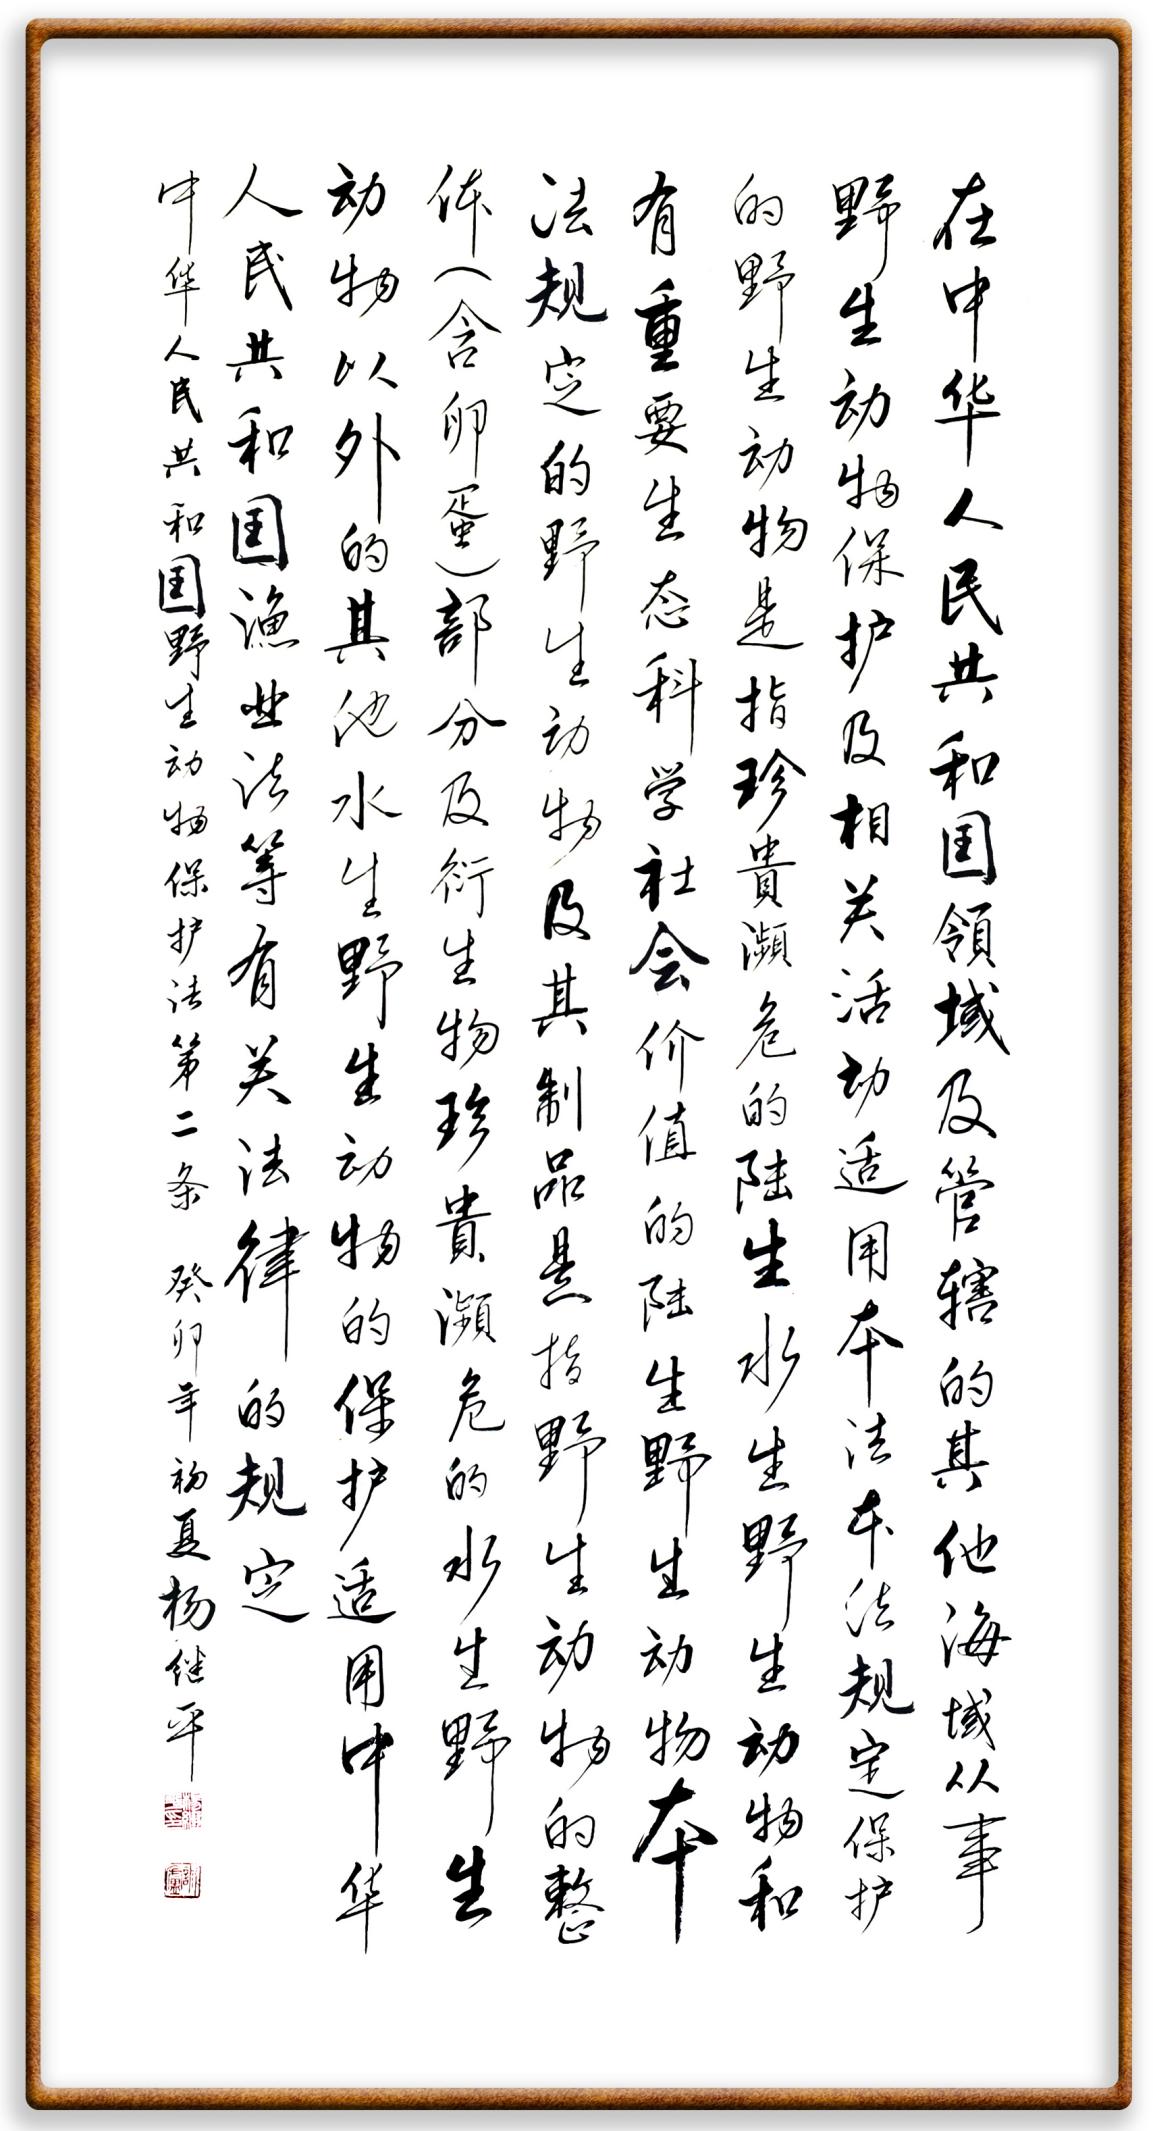 在中华人民共和国領域及管辖的其他海域从事
野生动物保护及相关活动适用本法本法规定保护
的野生动物是指珍貴瀕危的陆生水生野生动物和
有重要生态科学社会价值的陆生野生动物本
法规定的野生动物及其制品是指野生动物的整
体(含卵蛋)部分及衍生物珍貴瀕危的水生野生
动物以外的其他水生野生动物的保护适用中华
人民共和国渔业法等有关法律的规定
中华人民共和国野生动物保护法第二条 癸卯年初夏杨继平